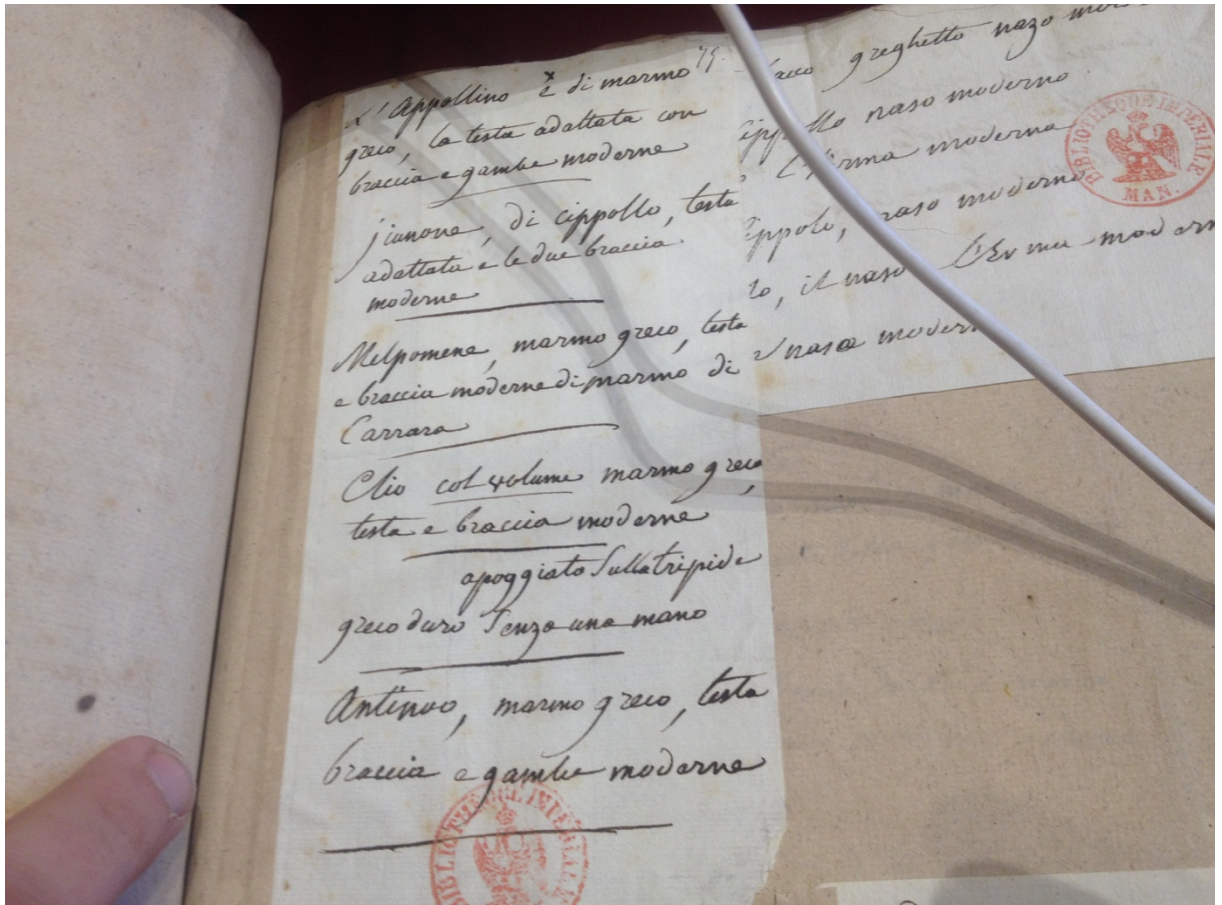 L'Appollino è di marmo
greco, la testa adattata con
braccia e gambe moderne
Jianone, di cippollo, testa
adattata e le due braccia
moderne
Melpomene, marmo greco, testa
e braccia moderne di marmo di
Carrara
Clio col volume marmo greco,
testa e braccia moderne
apoggiato sulla tripide
greco duro senza una mano
Antinoo, marmo greco, testa
braccia e gambe moderne
BIBLIOTHEQUE IMPERIALE
75.
greghetto nazo
naso moderno
L'Erma moderna
naso moderno
il naso L'Erma modern
naso modern
BIBLIOTHEQUE IMPERIALE
MAN.